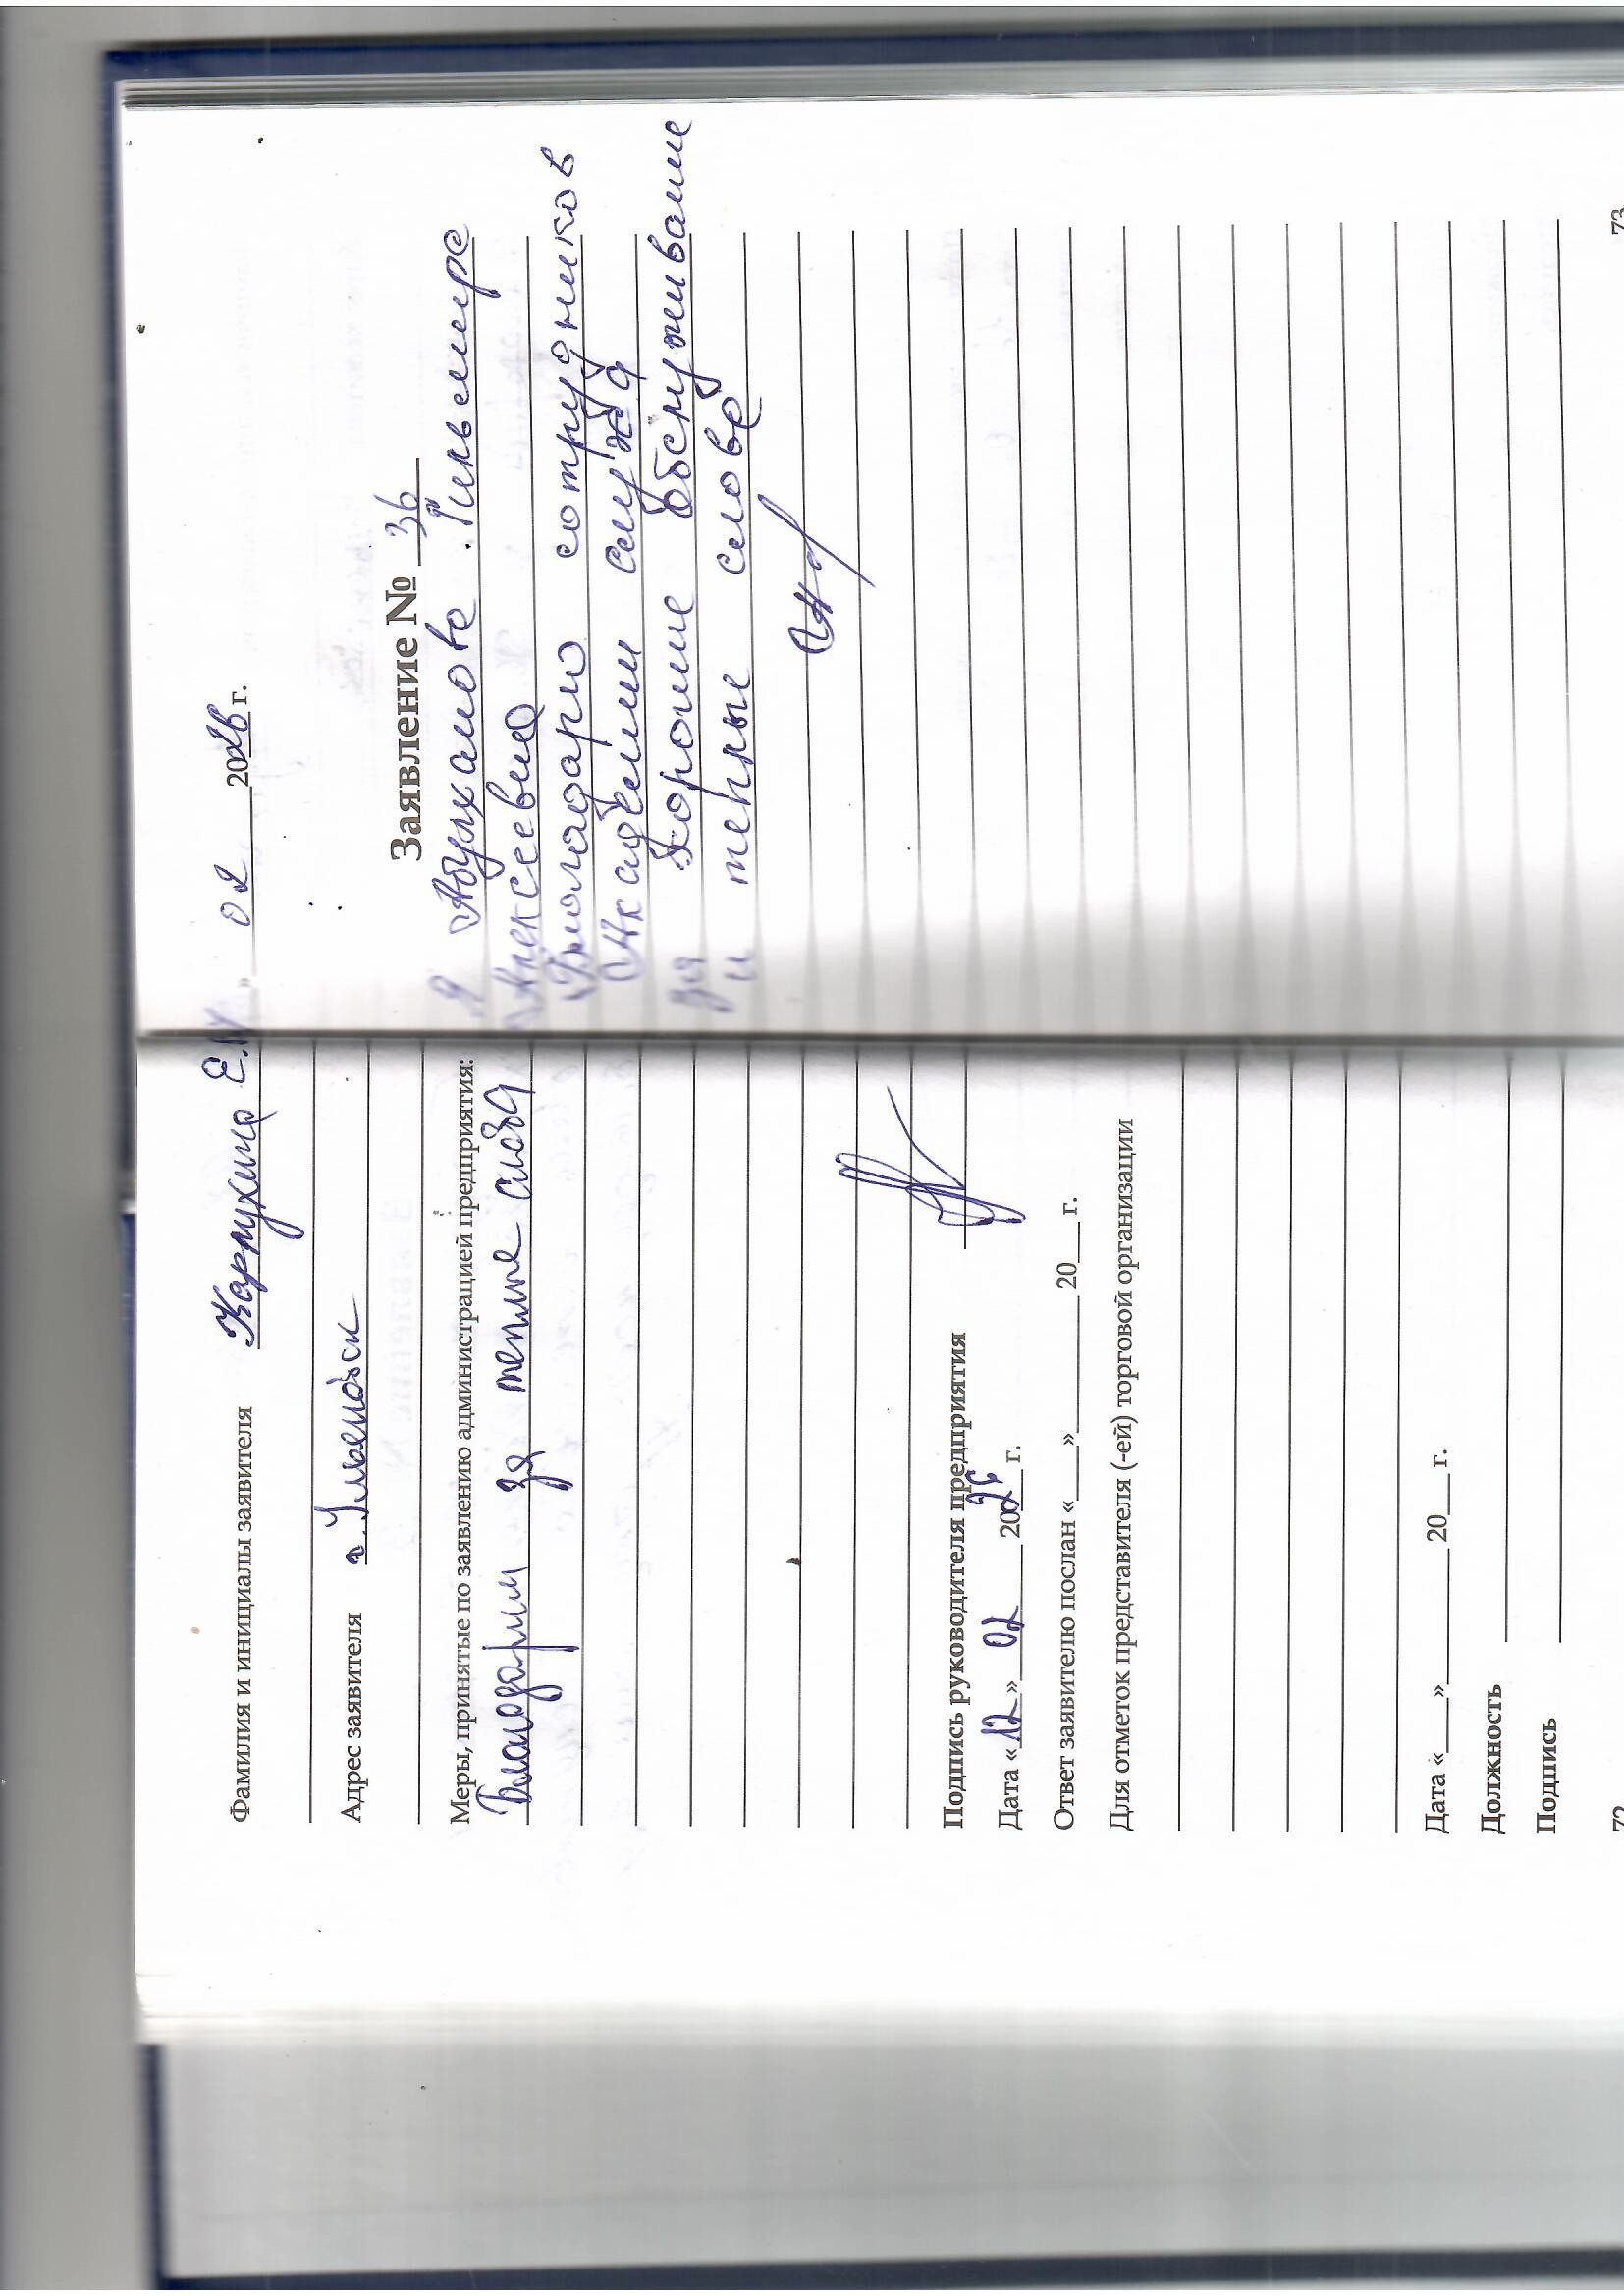 Фамилия и инициалы заявителя Карпухина Е.
Адрес заявителя г.
Меры, принятые по заявлению администрацией предприятия:
Благодарим за теплые слова
Подпись руководителя предприятия
Дата «12» 02 2026 г.
Ответ заявителю послан «___»________20___г.
Для отметок представителя (-ей) торговой организации
Дата «___»________20___г.
Должность
Подпись
72
» 02 2026 г.
Заявление № 36
Я
Алексеевна
Благодарю сотрудников
Академии служба
за хорошие обслуживание
и теплые слова
73